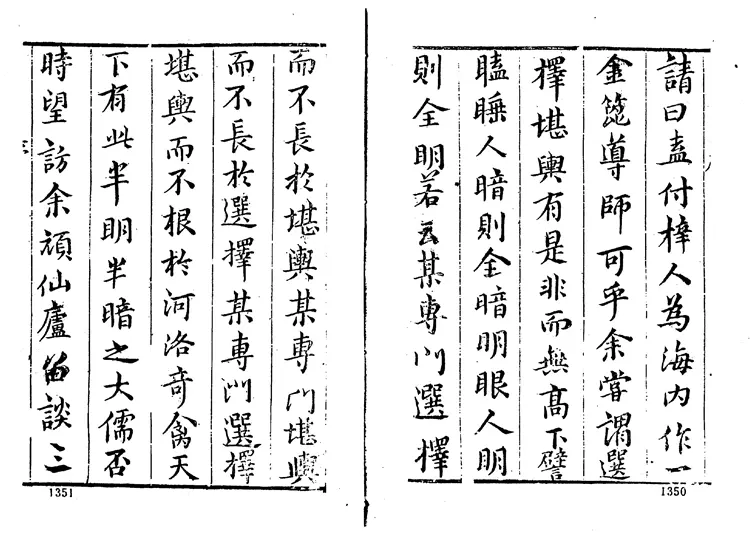 請曰盍付梓人為海内作一
金篦導師可乎余嘗謂選
擇堪輿有是非而無高下譬
瞌睡人暗則全暗明眼人明
則全明若云某專門選擇
1350
而不長於堪輿某專門堪輿
而不長於選擇某專門選擇
堪輿而不根於河洛奇禽天
下有此半明半暗之大儒否
時望訪余頑仙廬留談三
1351